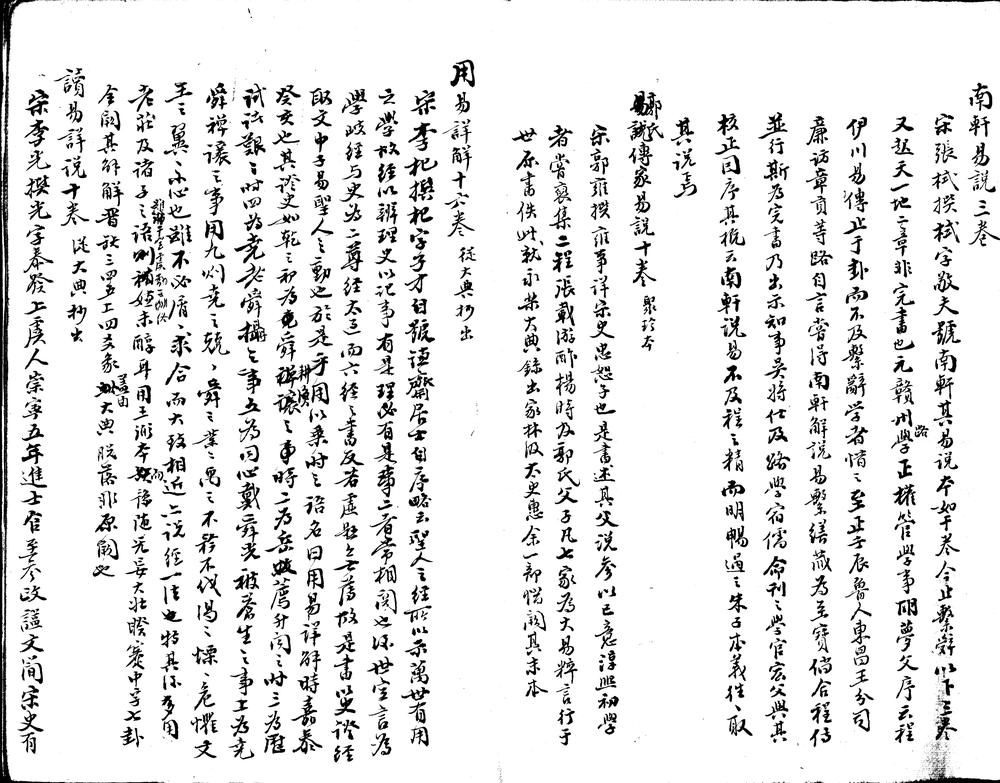 南軒易説三卷
宋張栻撰栻字敬夫號南軒其易説本如干卷今止繫辭以下三卷
又起天一地二章非完書也元贛州路學正權管學事胡夢父序云程
伊川易傳止于卦而不及繫辭學者惜之至正壬辰魯人東昌王分司
廉訪章貢等路自言嘗得南軒解説易繫繕藏為至寶倘合程傳
並行斯為完書乃出示知事吳將仕及路學宿儒命刊之學宫宏父與其
校正因序其槩云南軒説易不及程之精而明暢過之朱子本義往〻取
其説焉
郭氏傳家易説十卷 聚珍本
宋郭雍撰雍事詳宋史忠恕子也是書述其父説參以己意淳熙初學
者嘗裒集二程張載游酢楊時及郭氏父子凡七家為大易粹言行于
世原書佚此就永樂大典錄出家林汲太史惠余一部惜闕其末本
用易詳解十六卷 從大典抄出
宋李杞撰杞字子才自號謙齋居士自序略云聖人之經所以示萬世有用
之學故經以辨理史以記事有是理必有是事二者常相關也後世空言為
學歧經与史為二尊經太過而六經之書反若虛躗無薄故是書以史證經
取文中子易聖人之動也於是乎用以乘時之語名曰用易詳解時嘉泰
癸亥也其證史如乾之初為耕漁時二為岳薦升聞之時三為歷
試諸艱之時四為堯老舜攝之事五為同心戴舜光被蒼生之事上為堯
舜禪讓之事用九則堯之兢〻舜之業〻禹之不矜不伐湯之慄〻危懼文
王之翼〻小心也雖不必屑〻求合而大致相近亦説經一法也特其後多用
老莊及諸子之語則未醇耳用王弼本豫隨无妄大壯睽蹇中孚七卦
全闕其解解晋䷢三四五上四爻象蓋由大典脱落非原闕也
讀易詳説十卷 從大典抄出
宋李光撰光字泰發上虞人崇寧五年進士官至參政諡文簡宋史有